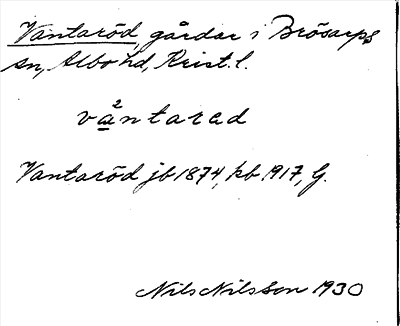 Vantaröd, gårdar i Brösarps
sn, Albo hd, Krist. l.
va²ntarad
Vantaröd jb 1874, kb 1917, G.
Nils Nilsson 1930